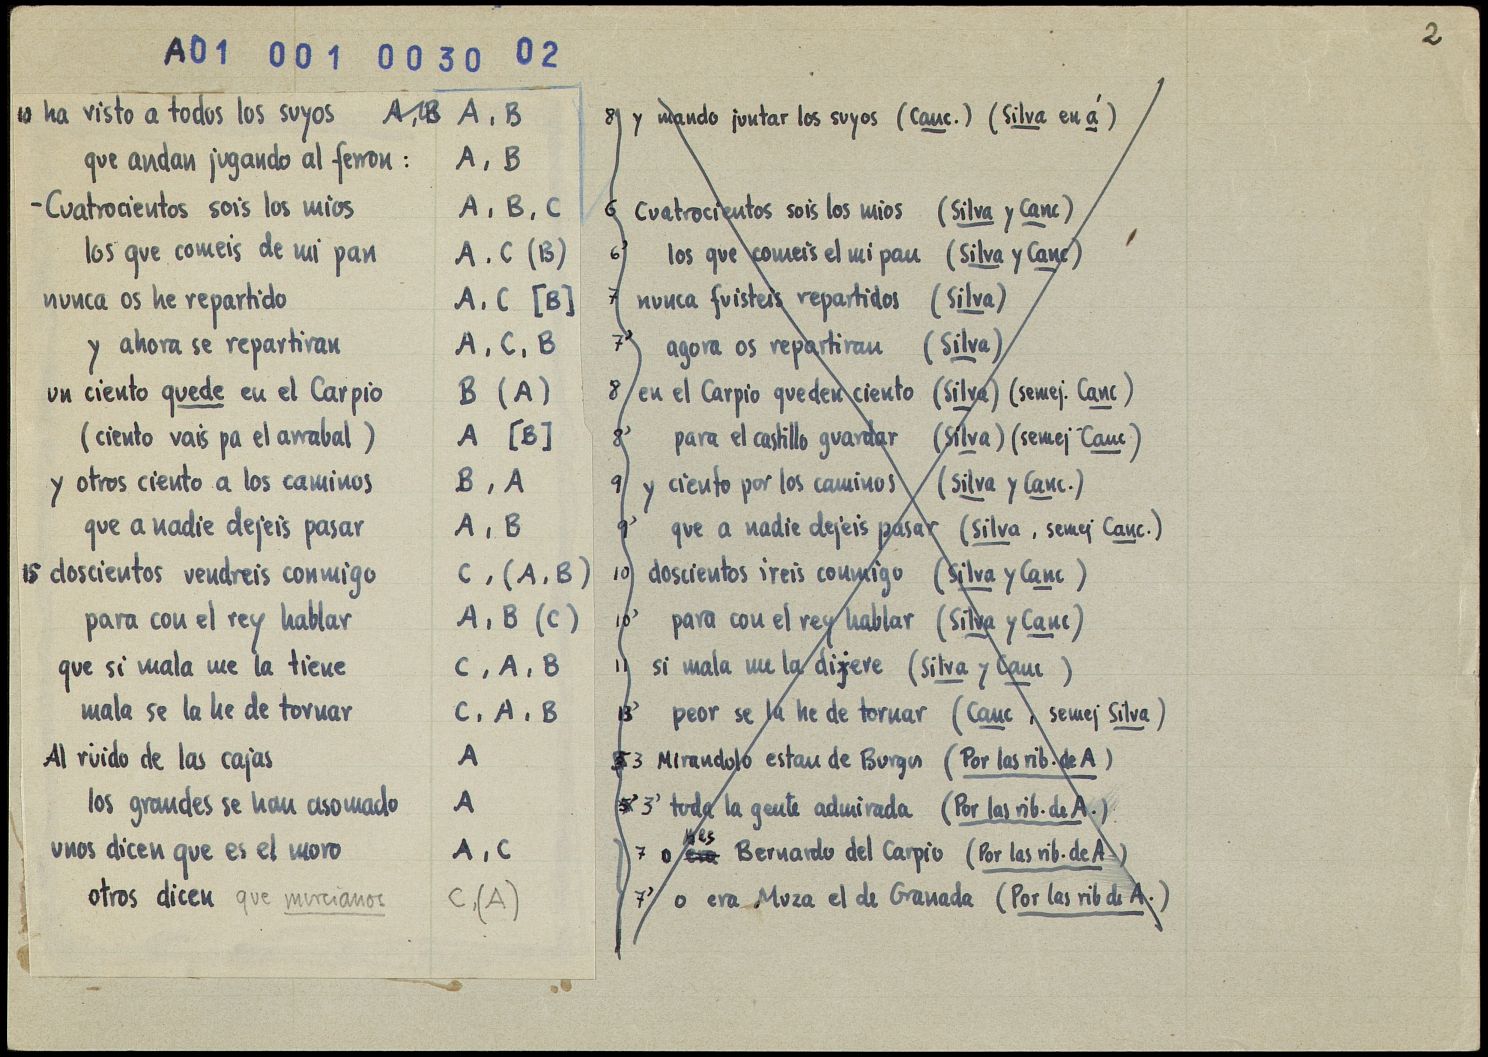 2
A01 001 0030 02
10 ha visto a todos los suyos A, B A, B
que andan jugando al ferron: A, B
-Cuatrocientos sois los mios A, B, C
los que comeis de mi pan A, C (B)
nunca os he repartido A, C [B]
y ahora se repartiran A, C, B
un ciento quede en el Carpio B (A)
(ciento vais pa el arrabal) A [B]
y otros ciento a los caminos B, A
que a nadie dejeis pasar A, B
15 doscientos vendreis conmigo C, (A, B)
para con el rey hablar A, B (C)
que si mala me la tiene C, A, B
mala se la he de tornar C, A, B
Al ruido de las cajas A
los grandes se han asomado A
unos dicen que es el moro A, C
otros dicen que murcianos C, (A)
8 y mando juntar los suyos (Canc.) (Silva en á)
6 Cuatrocientos sois los mios (Silva y Canc)
6' los que comeis el mi pan (Silva y Canc)
7 nunca fuisteis repartidos (Silva)
7' agora os repartiran (Silva)
8 en el Carpio queden ciento (Silva) (semej. Canc)
8' para el castillo guardar (Silva) (semej Canc)
9 y ciento por los caminos (Silva y Canc.)
9' que a nadie dejeis pasar (Silva, semej Canc.)
10 doscientos ireis conmigo (Silva y Canc)
10' para con el rey hablar (Silva y Canc)
11 si mala me la dijere (Silva y Canc)
peor se la he de tornar (Canc, semej Silva)
3 Mirandolo estan de Burgos (Por las rib. de A)
3' toda la gente admirada (Por las rib. de A.)
7 o era es Bernardo del Carpio (Por las rib. de A)
7' o era Muza el de Granada (Por las rib de A.)